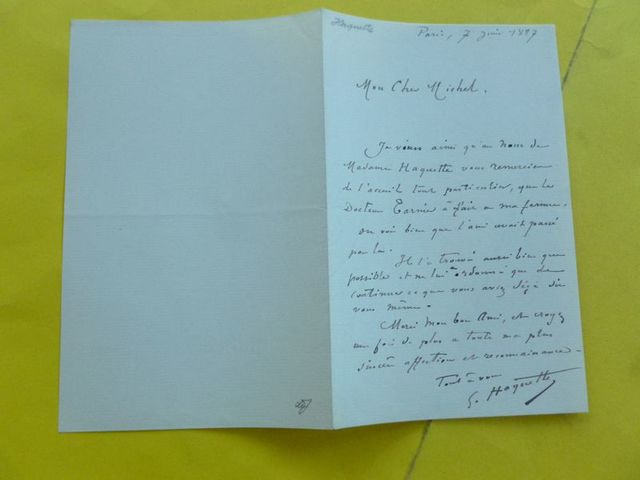 Haquette
Paris, 7 juin 1897
Mon Cher Michel.
Je viens ainsi qu'au nom de
Madame Haquette vous remercier
de l'acceuil tout particulier, que le
Docteur Tarnier à fait a ma femme.
on voit bien que l'ami avait passé
par là.
Il l'a trouvé aussi bien que
possible et ne lui a ordonné que de
continuer ce que vous aviez déjà dit
vous même.
Merci mon bon Ami, et croyez
une fois de plus a toute ma plus
sincère affection et reconnaissance.
Tout à vous
G. Haquette